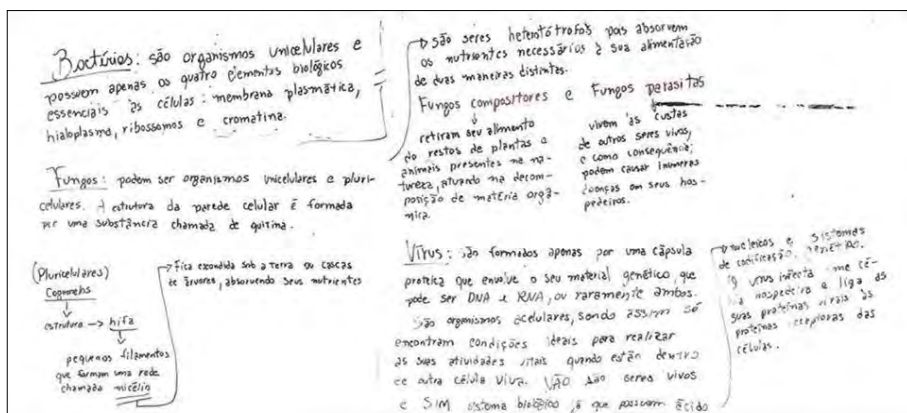 Bactérias: são organismos unicelulares e
possuem apenas os quatro elementos biológicos
essenciais às células: membrana plasmática,
hialoplasma, ribossomos e cromatina.
Fungos: podem ser organismos unicelulares e pluri-
celulares. A estrutura da parede celular é formada
por uma substância chamada de quitina.
(Pluricelulares)
Cogumelos
estrutura → hifa
pequenos filamentos
que formam uma rede
chamada micélio
Fica escondida sob a terra ou cascas
de árvores, absorvendo seus nutrientes
são seres heterótrofos pois absorvem
os nutrientes necessários à sua alimentação
de duas maneiras distintas.
Fungos compositores e Fungos parasitas
retiram seu alimento
do restos de plantas e
animais presentes na na-
tureza, atuando na decom-
posição de matéria orgâ-
nica.
vivem às custas
de outros seres vivos,
e como consequência,
podem causar inúmeras
doenças em seus hos-
pedeiros.
Vírus: são formados apenas por uma cápsula
proteica que envolve o seu material genético, que
pode ser DNA e RNA, ou raramente ambos.
São organismos acelulares, sendo assim só
encontram condições ideais para realizar
as suas atividades vitais quando estão dentro
de outra célula viva. NÃO são seres vivos
e SIM sistema biológico já que possuem ácido
nucleicos e sistemas
de codificação genético.
O vírus infecta uma cé-
lula hospedeira e liga as
suas proteínas virais às
proteínas receptoras das
células.